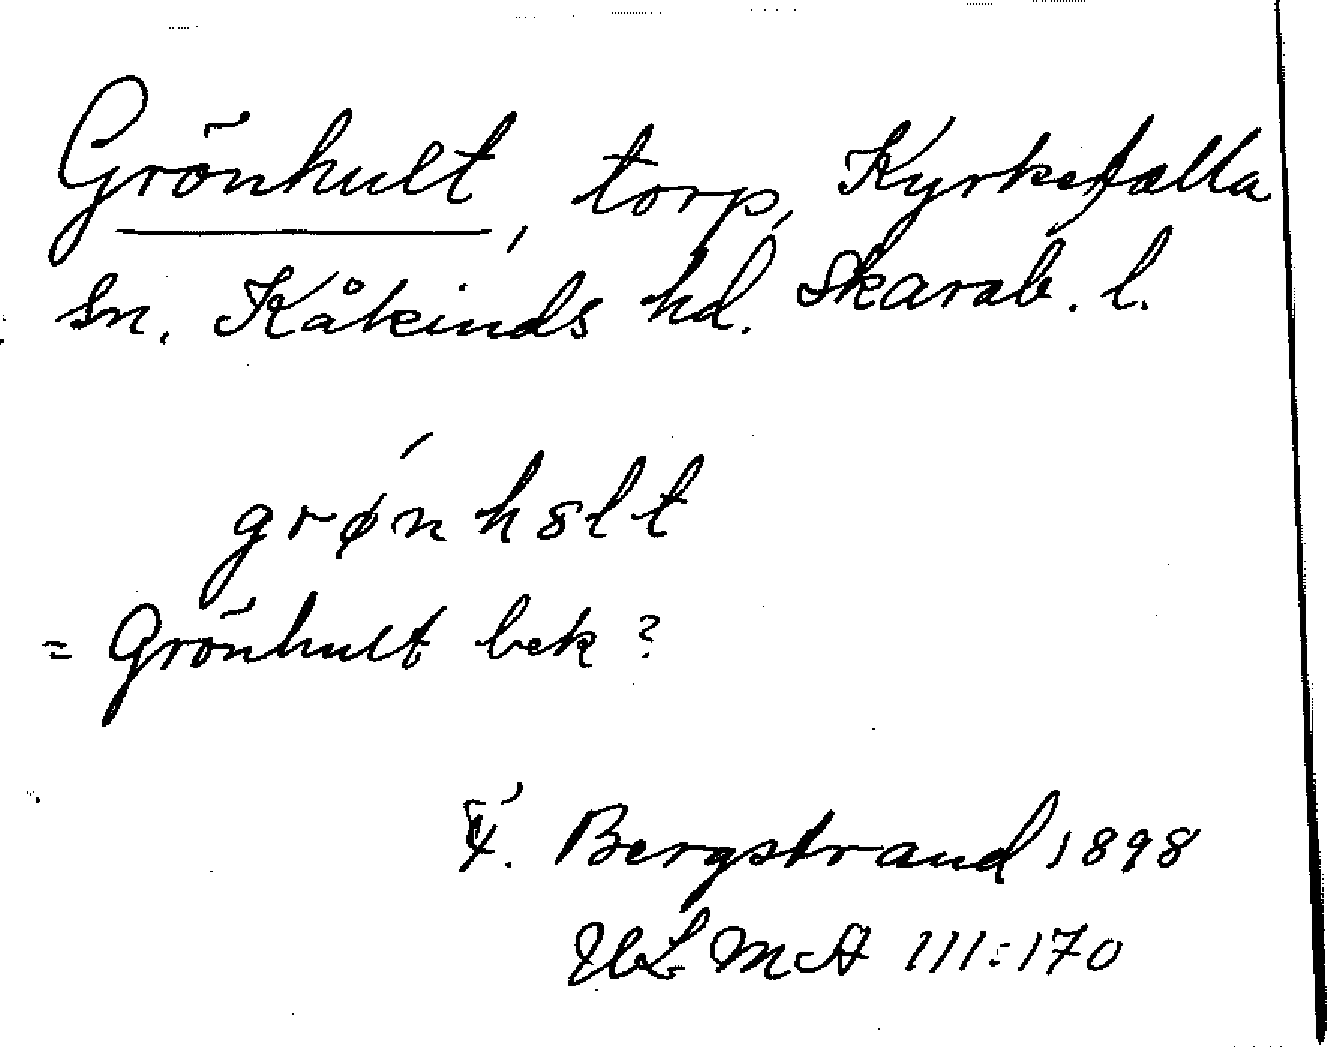 Grönhult, torp, Kyrkefalla
sn. Kåkinds hd. Skarab. l.
grǿnhslt
= Grönhult bek?
F. Bergstrand 1898
ULMA 111:170